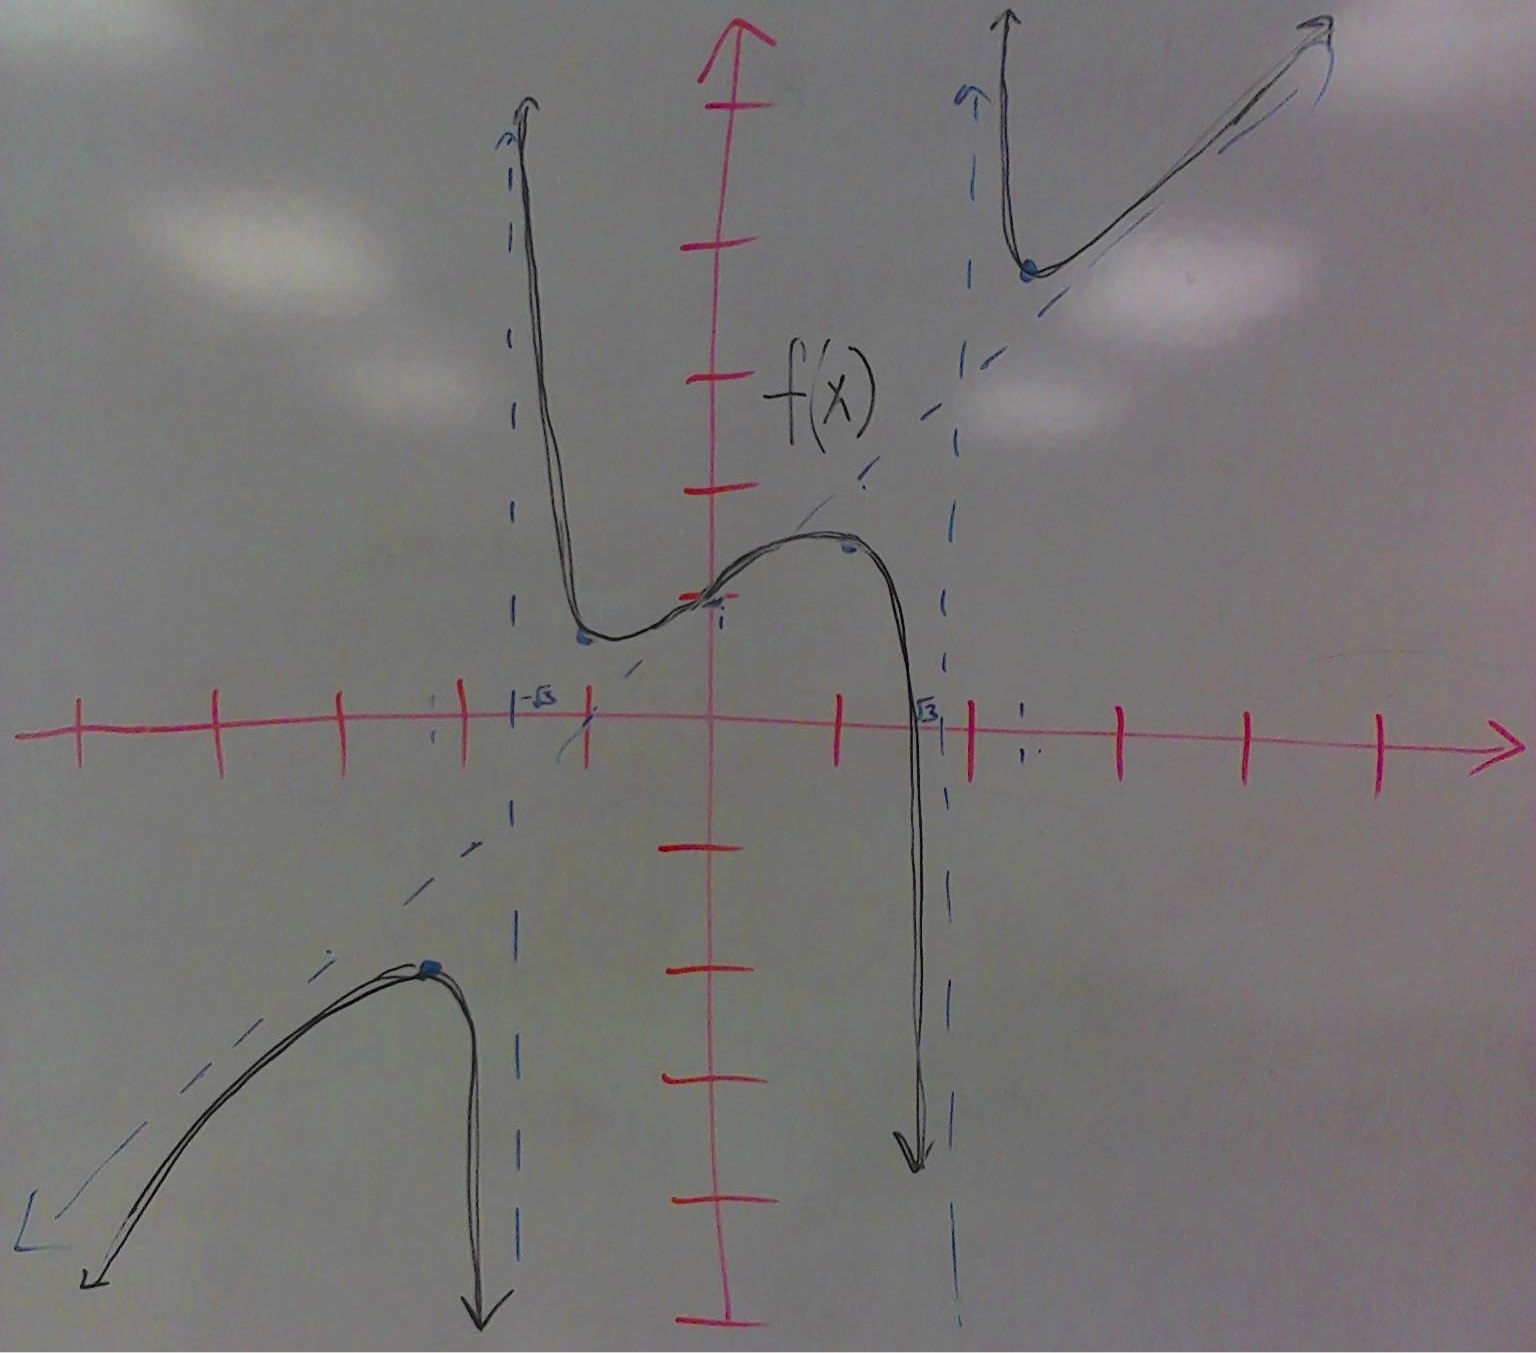 f(x)
-√3
√3